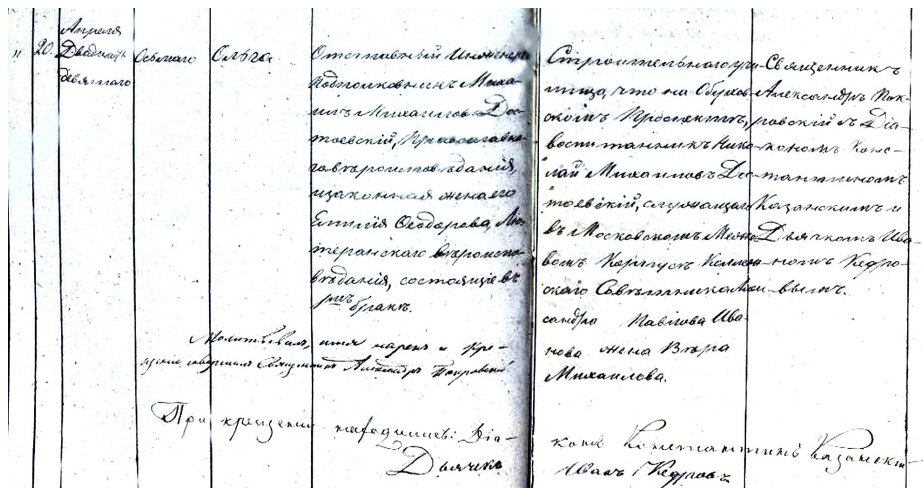 Апреля
" 20. Двадцать
девятаго
Осьмаго
Ольга
Отставный Инженеръ
Подполковникъ Миха-
илъ Михайловъ Дос-
тоевскій, Православна-
го вѣроисповѣданія,
и законная жена его
Емилія Ѳеодорова, Лю-
теранскаго вѣроиспо-
вѣданія, состоящіе въ
1мъ бракѣ.
Строительнаго учи-
лища, что на Обухов-
скомъ Проспектѣ,
воспитанникъ Нико-
лай Михайловъ Дос-
тоевскій, служащаго
въ Московскомъ Меже-
вомъ Корпусѣ Коллеж-
скаго Совѣтника Алек-
сандра Павлова Ива-
нова жена Вѣра
Михайлова.
Священникъ
Александръ Пок-
ровскій съ Діа-
кономъ Конс-
тантиномъ
Казанскимъ и
Дьячкомъ Ива-
номъ Кедро-
вымъ.
Молитвовалъ, имя нарекъ и Кре-
щеніе совершилъ Священникъ Александръ Покровскій
При крещеніи находились: Діа-
конъ Константинъ Казанскій
Дьячекъ Иванъ Кедровъ